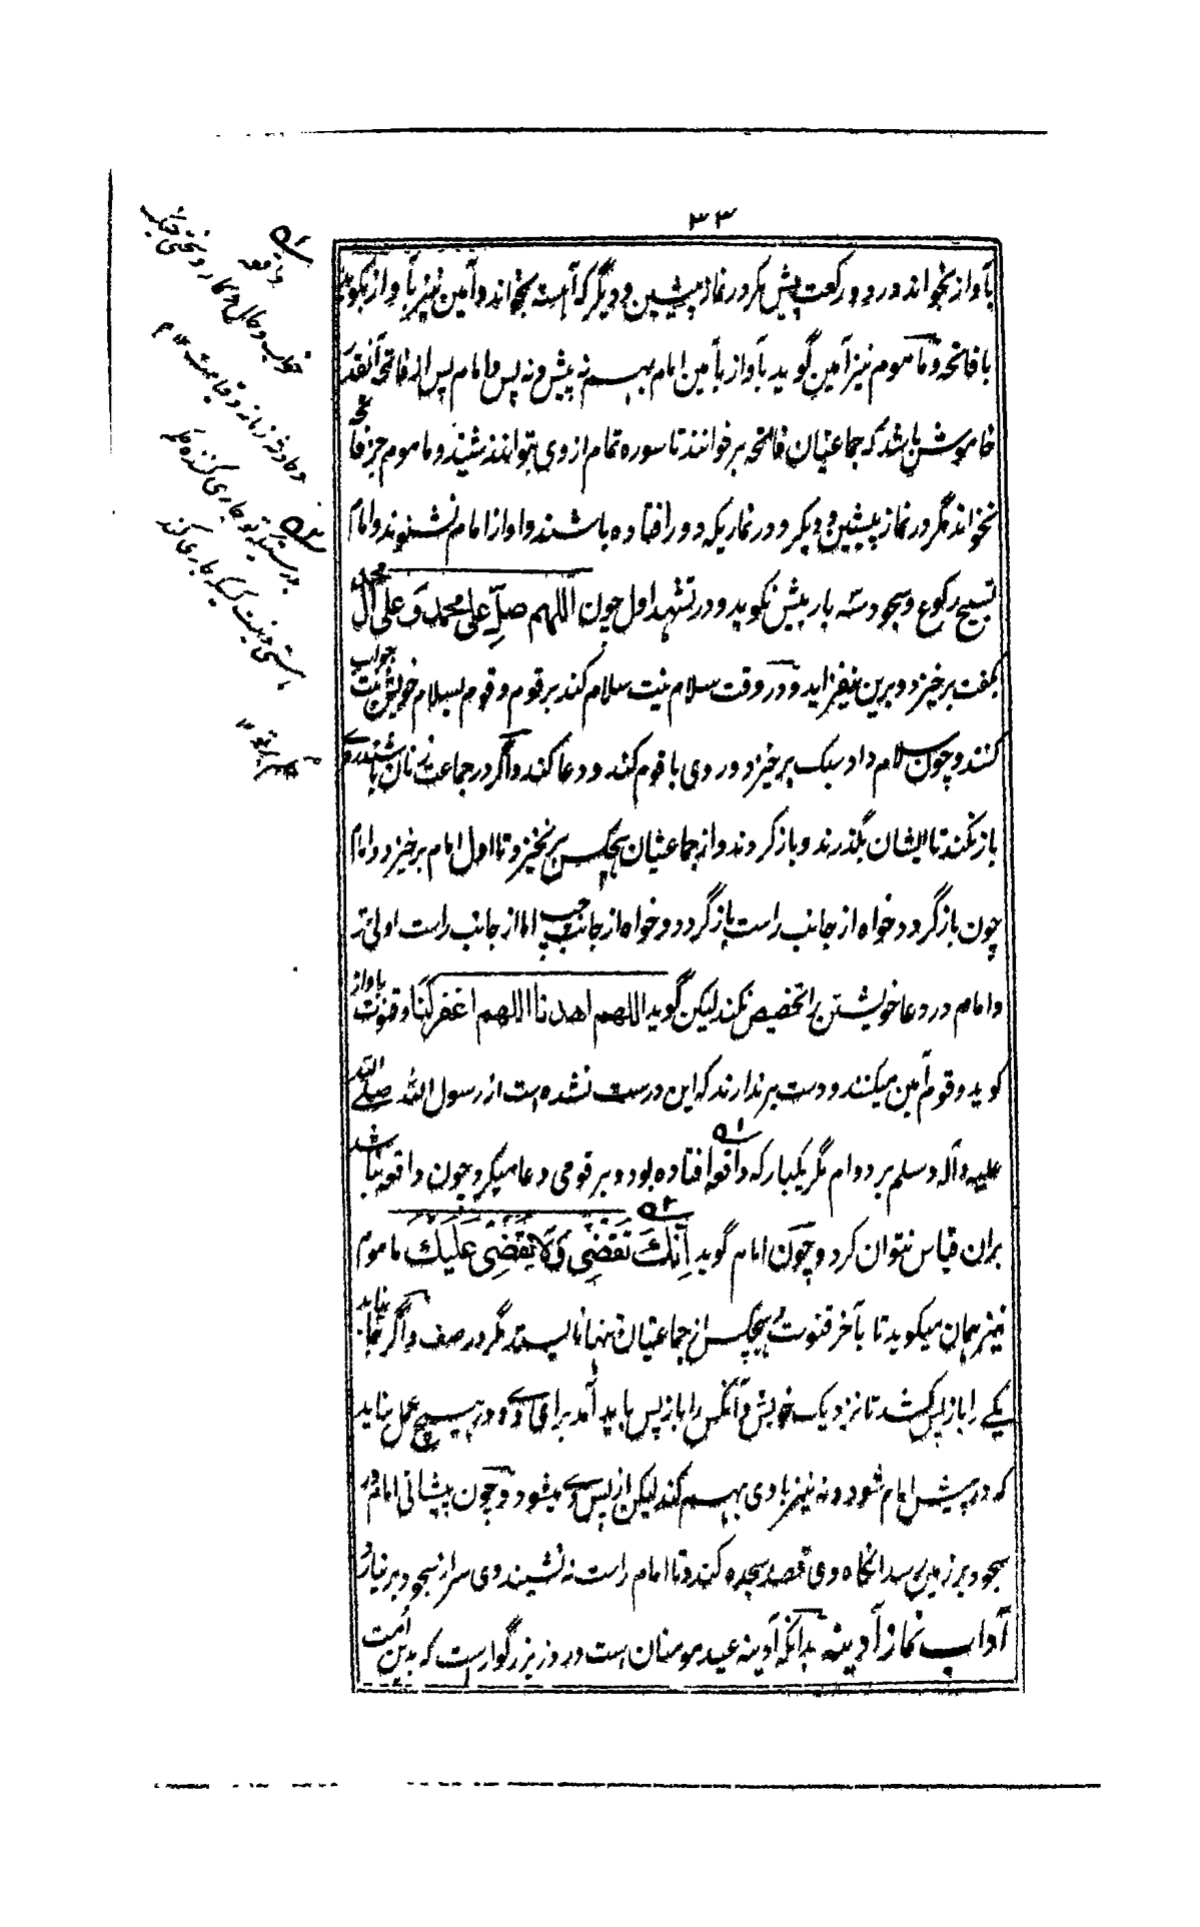 ۳۳
بآواز بخواند در دو رکعت پیش مگر در نماز پیشین و دیگر که آهسته بخواند و آمین نیز بآواز بگوید
با فاتحه و ماموم نیز آمین گوید بآواز بآمین امام بهم نه پیش و نه پس و امام پس از فاتحه آنقدر
خاموش باشد که جماعتیان فاتحه برخوانند تا سوره تمام از وی بتوانند شنید و ماموم جز فاتحه
نخواند مگر در نماز پیشین و دیگر و در نماریکه دور افتاده باشند و آواز امام نشنوند و امام
تسبیح رکوع و سجود سه بار بیش نگوید و در تشهد اول چون اللهم صل علی محمد و علی آل محمد
بگفت برخیزد و برین نیفزاید و در وقت سلام نیت سلام کند بر قوم و قوم بسلام خویش نیت جواب
کنند و چون سلام داد سبک برخیزد و روی با قوم کند و دعا کند و اگر در جماعت زنان باشند روی
باز نکند تا ایشان بگذرند و باز گردند و از جماعتیان هیچکس برنخیزد تا اول امام برخیزد و امام
چون باز گردد خواه از جانب راست باز گردد و خواه از جانب چپ اما از جانب راست اولی تر
و امام در دعا خویشتن را تخصیص نکند لیکن گوید اللهم اهدنا اللهم اغفر لنا و قنوت بآواز
گوید و قوم آمین میکنند و دست برندارند که این درست نشده است از رسول الله صلی الله
علیه و آله و سلم بر دوام مگر یکبار که واقعه افتاده بود و بر قومی دعا میکرد و چون واقعه نباشد
بران قیاس نتوان کرد و چون امام گوید اِنَّكَ تَقْضِي وَ لَا يُقْضَى عَلَيْكَ ماموم
نیز همان میگوید تا بآخر قنوت و هیچکس از جماعتیان تنها نایستد مگر در صف و اگر جا نیابد
یکے را باز پس کشد تا نزدیک خویش و آنکس را باز پس باید آمد برای وے و در هیچ عمل نباید
که در پیش امام شود و نه نیز با وی بهم کند لیکن از پس وے میشود و چون پیشانی امام در
سجود بر زمین رسد آنگاه وی قصد سجده کند و تا امام راست نه نشیند وی سر از سجود برنیارد
آداب نماز آدینه بدانکه آدینه عید مومنان است و روز بزرگوارست که بدین امت
ﻪ۱
واقعه
خواب و حال و کار و سختی جنگ
و حادثه زمانه و قیامت ۱۲ م
ﻪ۲
بدرستیکه تو جاری کننده